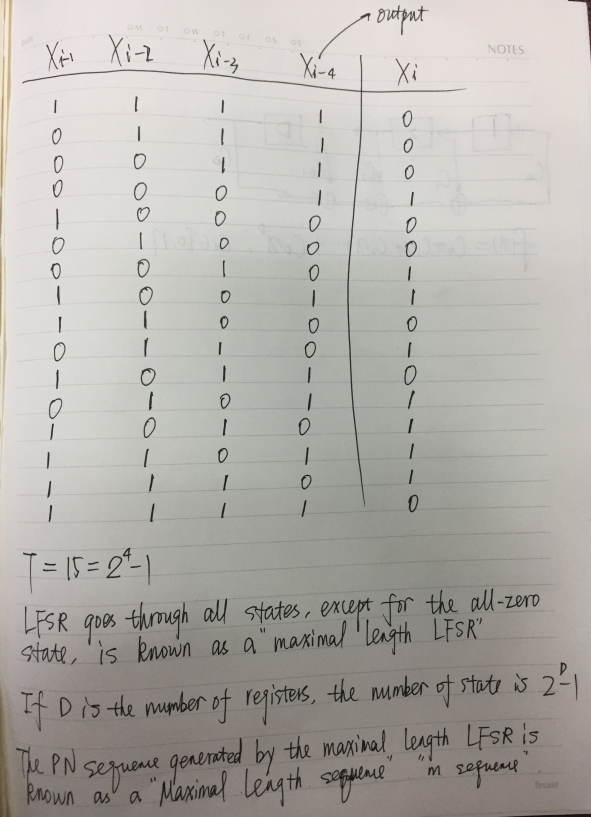 output
NOTES
Xi-1 Xi-2 Xi-3 Xi-4 Xi
1 1 1 1 0
0 1 1 1 0
0 0 1 1 0
0 0 0 1 1
1 0 0 0 0
0 1 0 0 0
0 0 1 0 1
1 0 0 1 1
1 1 0 0 0
0 1 1 0 1
1 0 1 1 0
0 1 0 1 1
1 0 1 0 1
1 1 0 1 1
1 1 1 0 1
1 1 1 1 0
T = 15 = 2⁴-1
LFSR goes through all states, except for the all-zero
state, is known as a "maximal length LFSR"
If D is the number of registers, the number of state is 2ᴰ-1
The PN sequence generated by the maximal length LFSR is
known as a "Maximal Length sequence" "m sequence".